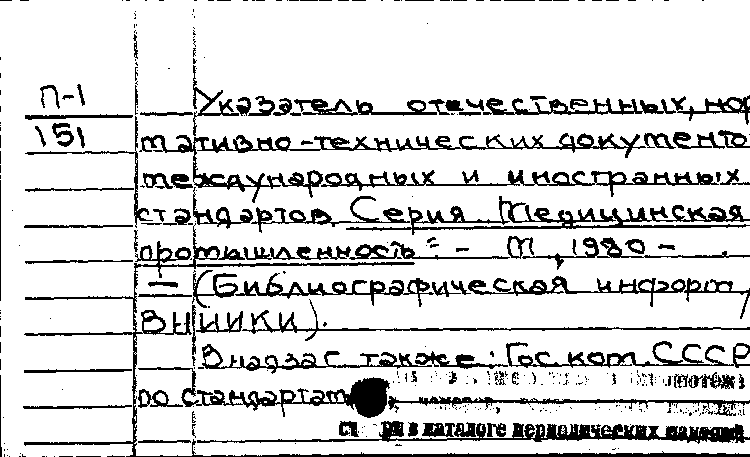 П-1
151
Указатель отечественных, нор
мативно-технических документо
международных и иностранных
стандартов. Серия Медицинская
промышленность: - М, 1980 - .
— (Библиографическая информ,
ВНИИКИ).
В надзаг также: Гос. ком СССР
по стандартам
в каталоге периодических изданий